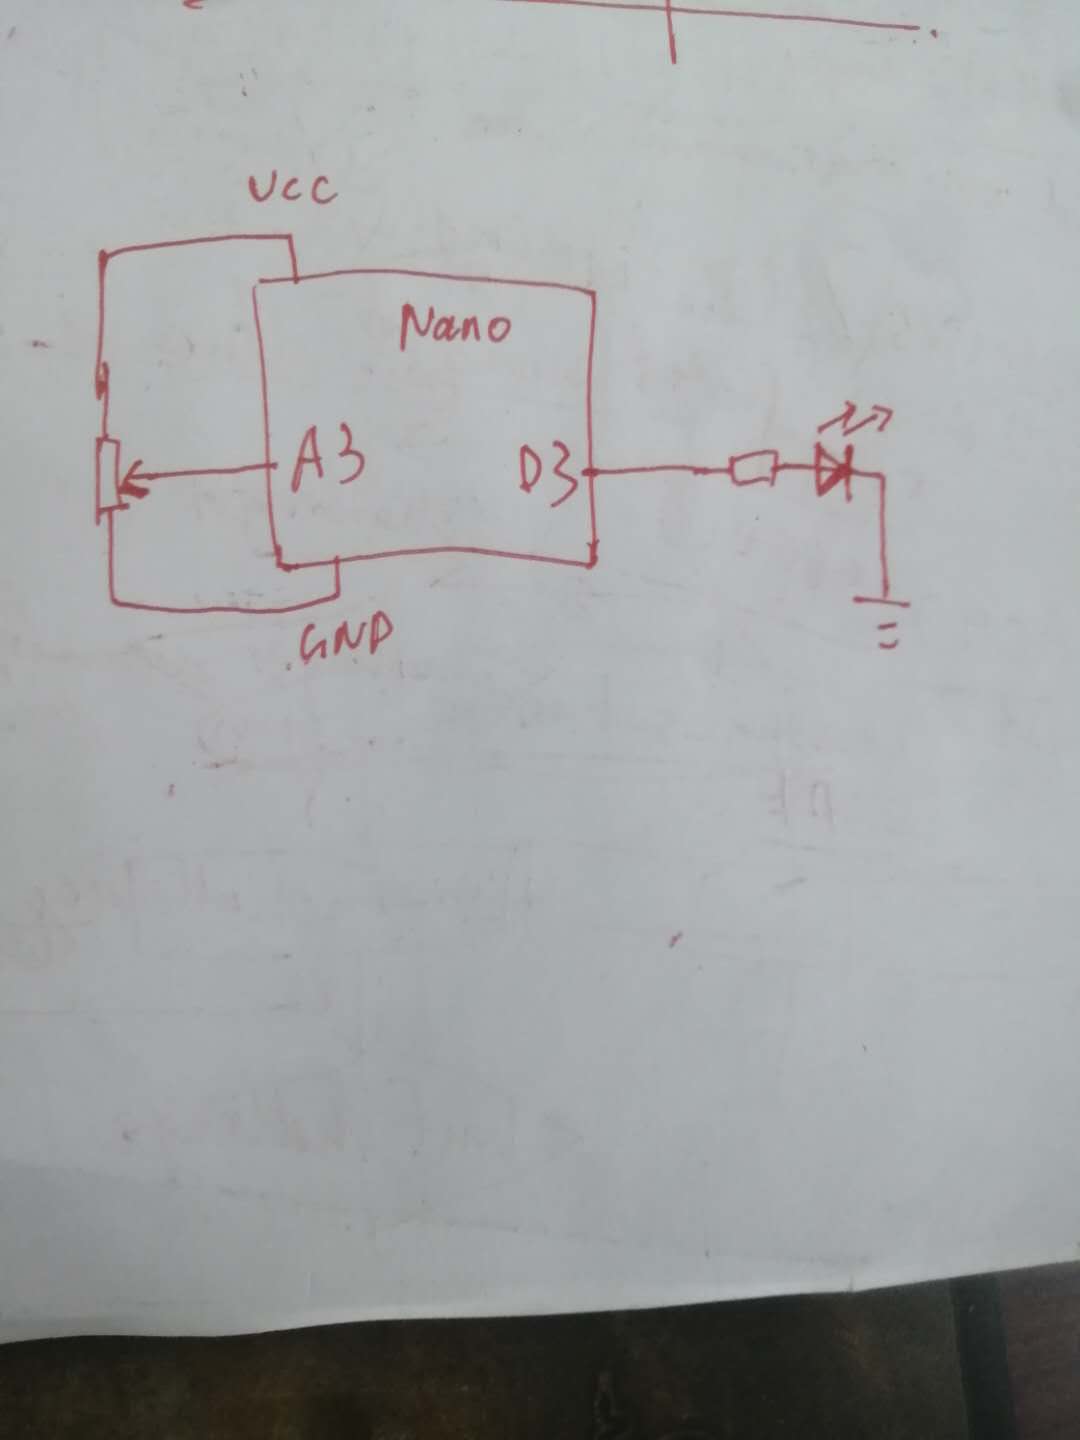 VCC
Nano
A3 D3
GND